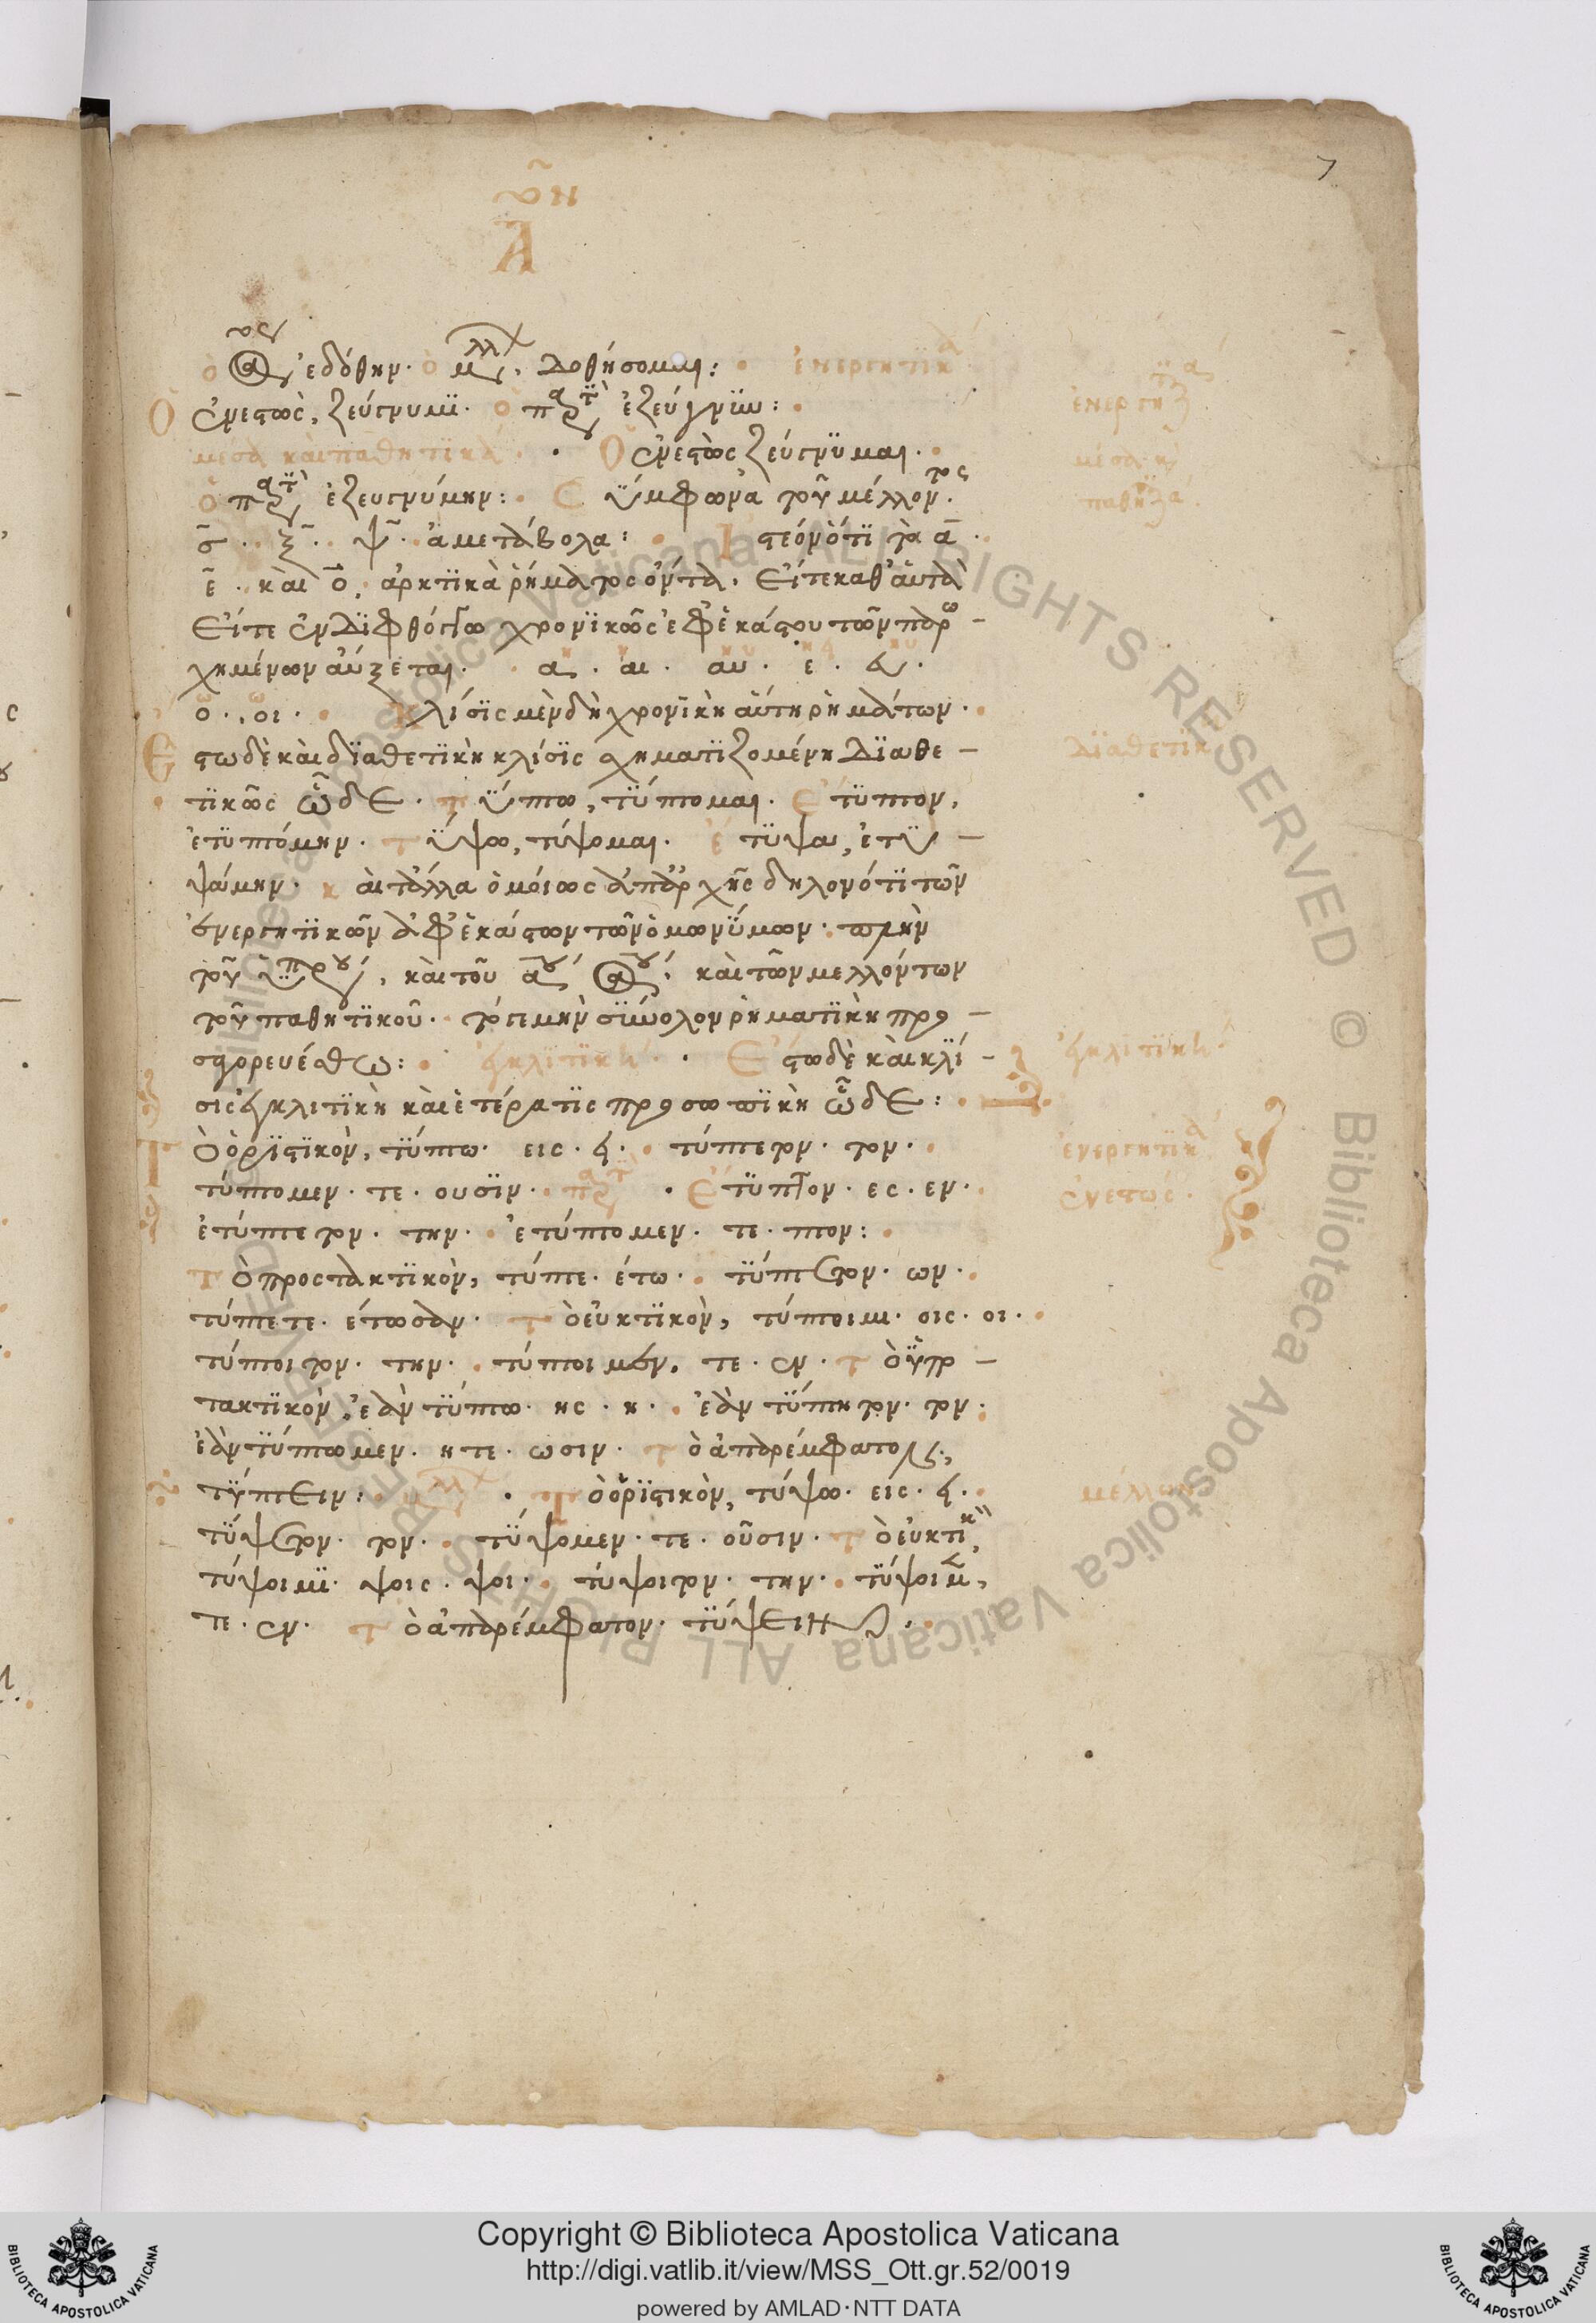 7
ὁ ἐδόθην· ὁ δοθήσομαι: ἐνεργητικὰ
Ὁ ἐνεστὼς, ζεύγνυμι· ὁ ἐζεύγνυν:
μέσα καὶ παθητικά· Ὁ ἐνεστὼς ζεύγνυμαι·
ὁ ἐζευγνύμην: Σύμφωνα τοῦ μέλλοντος·
σ· ξ· ψ· ἀμετάβολα: Ἰστέον ὅτι τὰ α·
ε· καὶ ο, ἀρκτικὰ ῥήματος ὄντα, εἴτε καθ' αὑτὰ
εἴτε ἐν διφθόγγω χρονικῶς ἐφ' ἑκάστου τῶν παρω-
χημένων αὔξεται· α· αι· αυ· ε·
ο·, οι· Κλίσις μὲν δὴ χρονικὴ αὕτη ῥημάτων·
Ἔστω δὲ καὶ διαθετικὴ κλίσις σχηματιζομένη διαθε-
τικῶς ὧδε· τύπτω, τύπτομαι· ἔτυπτον,
ἐτυπτόμην· τύψω, τύψομαι· ἔτυψα, ἐτυ-
ψάμην· καὶ τἄλλα ὁμοίως ἀπαρχῆς δηλονότι τῶν
ἐνεργητικῶν ἀφ' ἑκάστων τῶν ὁμωνύμων· πλὴν
τοῦ, καὶ τοῦ καὶ τῶν μελλόντων
τοῦ παθητικοῦ· τό γε μὴν σύνολον ῥηματικὴ προ-
σαγορευέσθω: ἐγκλιτική· Ἔστω δὲ καὶ κλί-
σις ἐγκλιτικὴ καὶ ἑτέρα τις προσωπικὴ ὧδε:
Τὸ ὁριστικὸν, τύπτω· εις· ει· τύπτετον· τον·
τύπτομεν· τε· ουσιν· Ἔτυπτον· ες· εν·
ἐτύπτετον· την· ἐτύπτομεν· τε· πτον:
Τὸ προστακτικὸν, τύπτε· έτω· τύπτετον· ων·
τύπτετε· έτωσαν· τὸ εὐκτικὸν, τύπτοιμι· οις· οι·
τύπτοιτον· την· τύπτοιμεν, τε· εν· τὸ ὑπο-
τακτικὸν, ἐὰν τύπτω· ης· η· ἐὰν τύπτητον· τον·
ἐὰν τύπτωμεν· ητε· ωσιν· τὸ ἀπαρέμφατον,
τύπτειν: Τὸ ὁριστικὸν, τύψω· εις· ει·
τύψετον· τον· τύψομεν· τε· ουσιν· τὸ εὐκτικ
τύψοιμι· ψοις· ψοι· τύψοιτον· την· τύψοιμεν,
τε· εν· τὸ ἀπαρέμφατον· τύψειν:
μέσα καὶ
διαθετικ
ἐγκλιτικὴ
ἐνεργητικὰ
ἐνεστώς·
μέλλων
Copyright © Biblioteca Apostolica Vaticana
http://digi.vatlib.it/view/MSS_Ott.gr.52/0019
powered by AMLAD·NTT DATA
BIBLIOTECA APOSTOLICA VATICANA
BIBLIOTECA APOSTOLICA VATICANA
Biblioteca Apostolica Vaticana ALL RIGHTS RESERVED ©